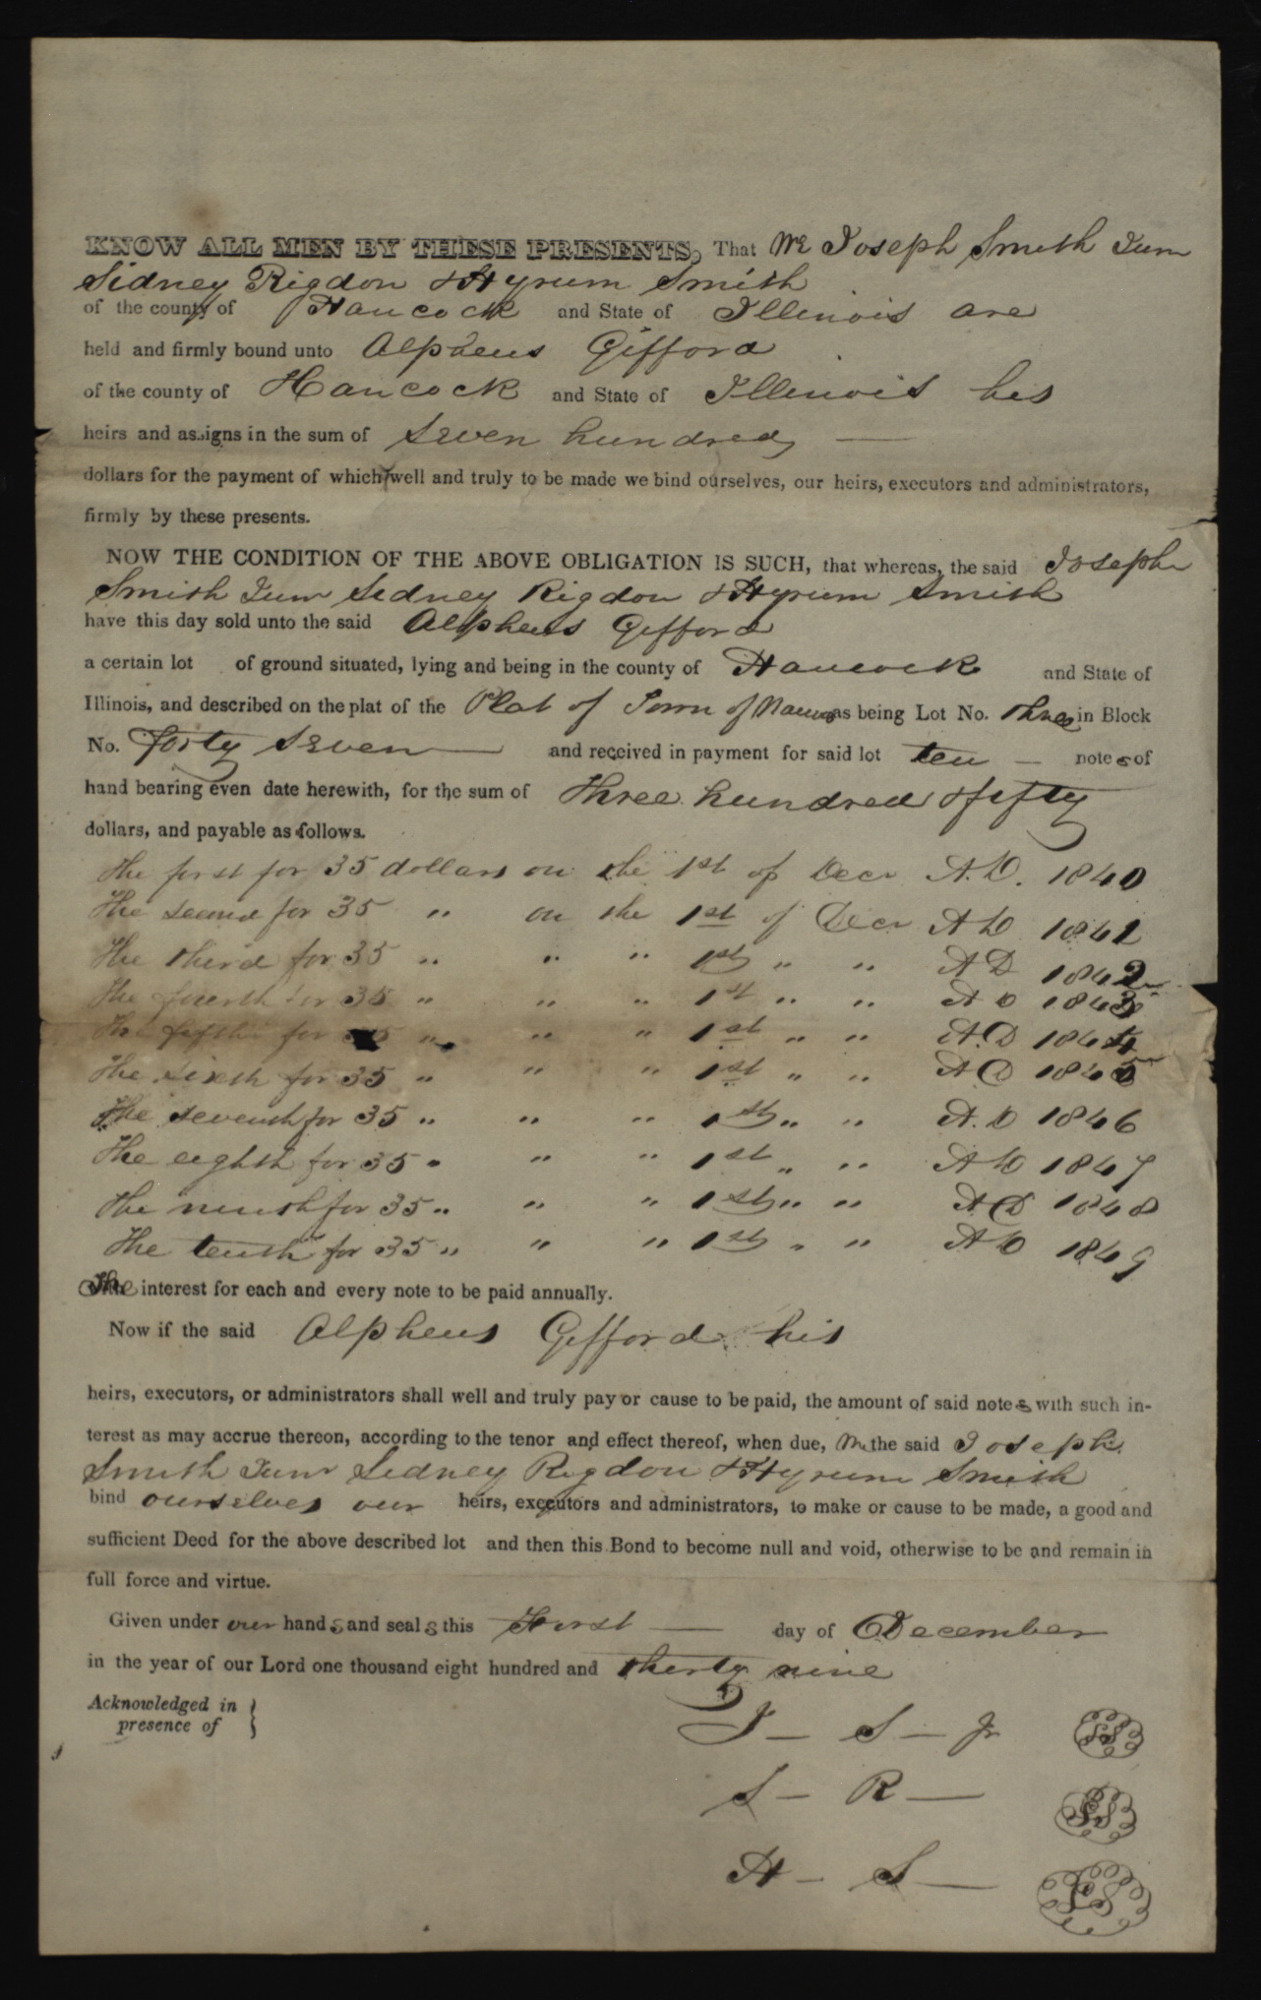 KNOW ALL MEN BY THESE PRESENTS, That We Joseph Smith Junr
Sidney Rigdon & Hyrum Smith
of the county of Hancock and State of Illinois are
held and firmly bound unto Alpheus Gifford
of the county of Hancock and State of Illinois his
heirs and assigns in the sum of Seven hundred —
dollars for the payment of which well and truly to be made we bind ourselves, our heirs, executors and administrators,
firmly by these presents.
NOW THE CONDITION OF THE ABOVE OBLIGATION IS SUCH, that whereas, the said Joseph
Smith Junr Sidney Rigdon & Hyrum Smith
have this day sold unto the said Alpheus Gifford
a certain lot of ground situated, lying and being in the county of Hancock and State of
Illinois, and described on the plat of the Plat of Town of Nauvoo as being Lot No. three in Block
No. forty seven — and received in payment for said lot ten — notes of
hand bearing even date herewith, for the sum of Three hundred & fifty
dollars, and payable as follows.
The first for 35 dollars on the 1st of Decr A.D. 1840
The second for 35 " on the 1st of Decr AD 1841
The third for 35 " " " 1st " " AD 1842
The fourth for 35 " " " 1st " " AD 1843
The fifth for 35 " " " 1st " " A.D 1844
The sixth for 35 " " " 1st " " AD 1845
The seventh for 35 " " " 1st " " A.D 1846
The eighth for 35 " " " 1st " " AD 1847
The ninth for 35 " " " 1st " " AD 1848
The tenth for 35 " " " 1st " " AD 1849
The interest for each and every note to be paid annually.
Now if the said Alpheus Gifford his
heirs, executors, or administrators shall well and truly pay or cause to be paid, the amount of said notes with such in-
terest as may accrue thereon, according to the tenor and effect thereof, when due, We the said Joseph
Smith Junr Sidney Rigdon & Hyrum Smith
bind ourselves our heirs, executors and administrators, to make or cause to be made, a good and
sufficient Deed for the above described lot and then this Bond to become null and void, otherwise to be and remain in
full force and virtue.
Given under our hands and seals this First — day of December
in the year of our Lord one thousand eight hundred and thirty nine
Acknowledged in }
presence of }
J — S — Jr LS
S — R — LS
H — S — LS